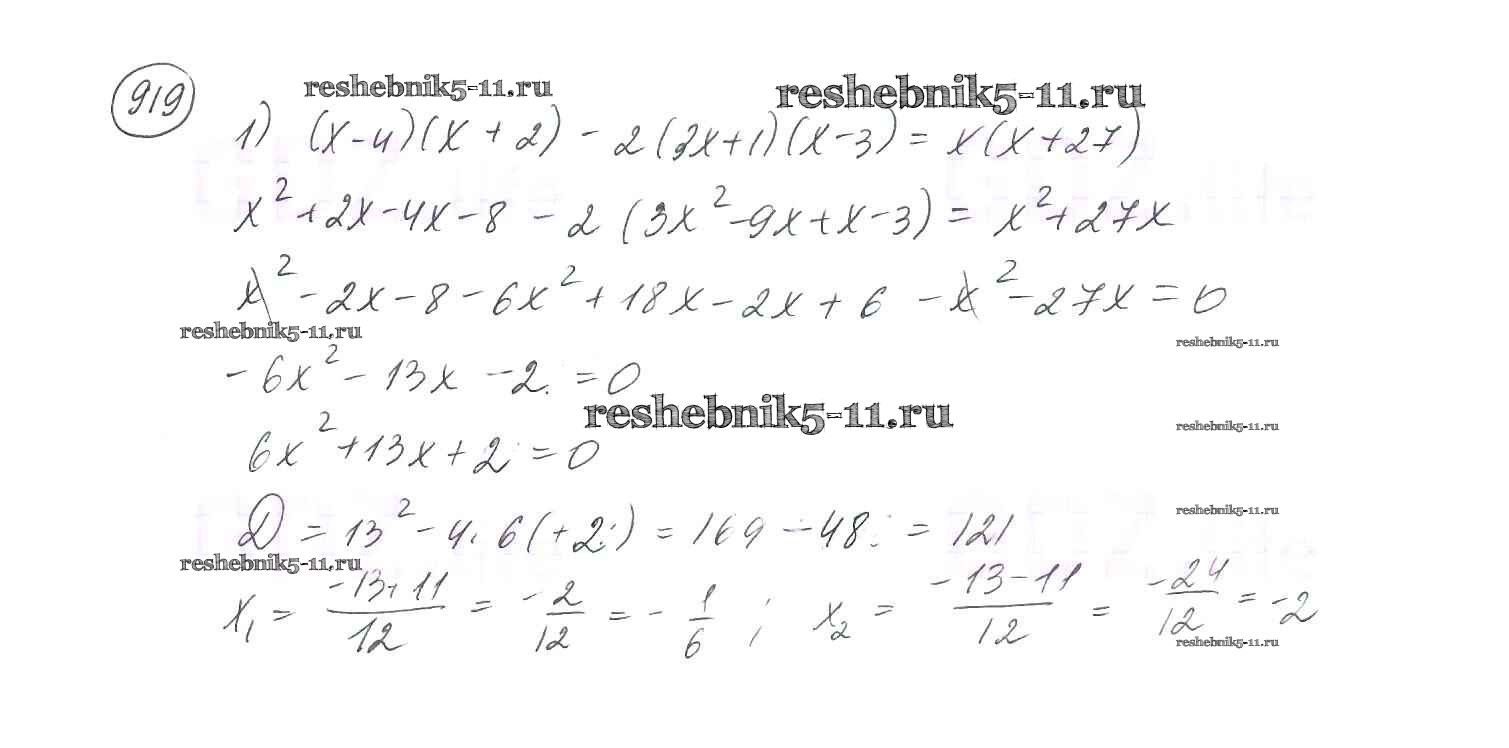 919 reshebnik5-11.ru reshebnik5-11.ru
1) (x-4)(x+2)-2(3x+1)(x-3)=x(x+27)
x²+2x-4x-8-2(3x²-9x+x-3)=x²+27x
x²-2x-8-6x²+18x-2x+6-x²-27x=0
reshebnik5-11.ru reshebnik5-11.ru
-6x²-13x-2=0
reshebnik5-11.ru reshebnik5-11.ru
6x²+13x+2=0
reshebnik5-11.ru
D=13²-4·6(+2)=169-48=121
reshebnik5-11.ru
x₁=(-13+11)/12=-2/12=-1/6; x₂=(-13-11)/12=-24/12=-2
reshebnik5-11.ru